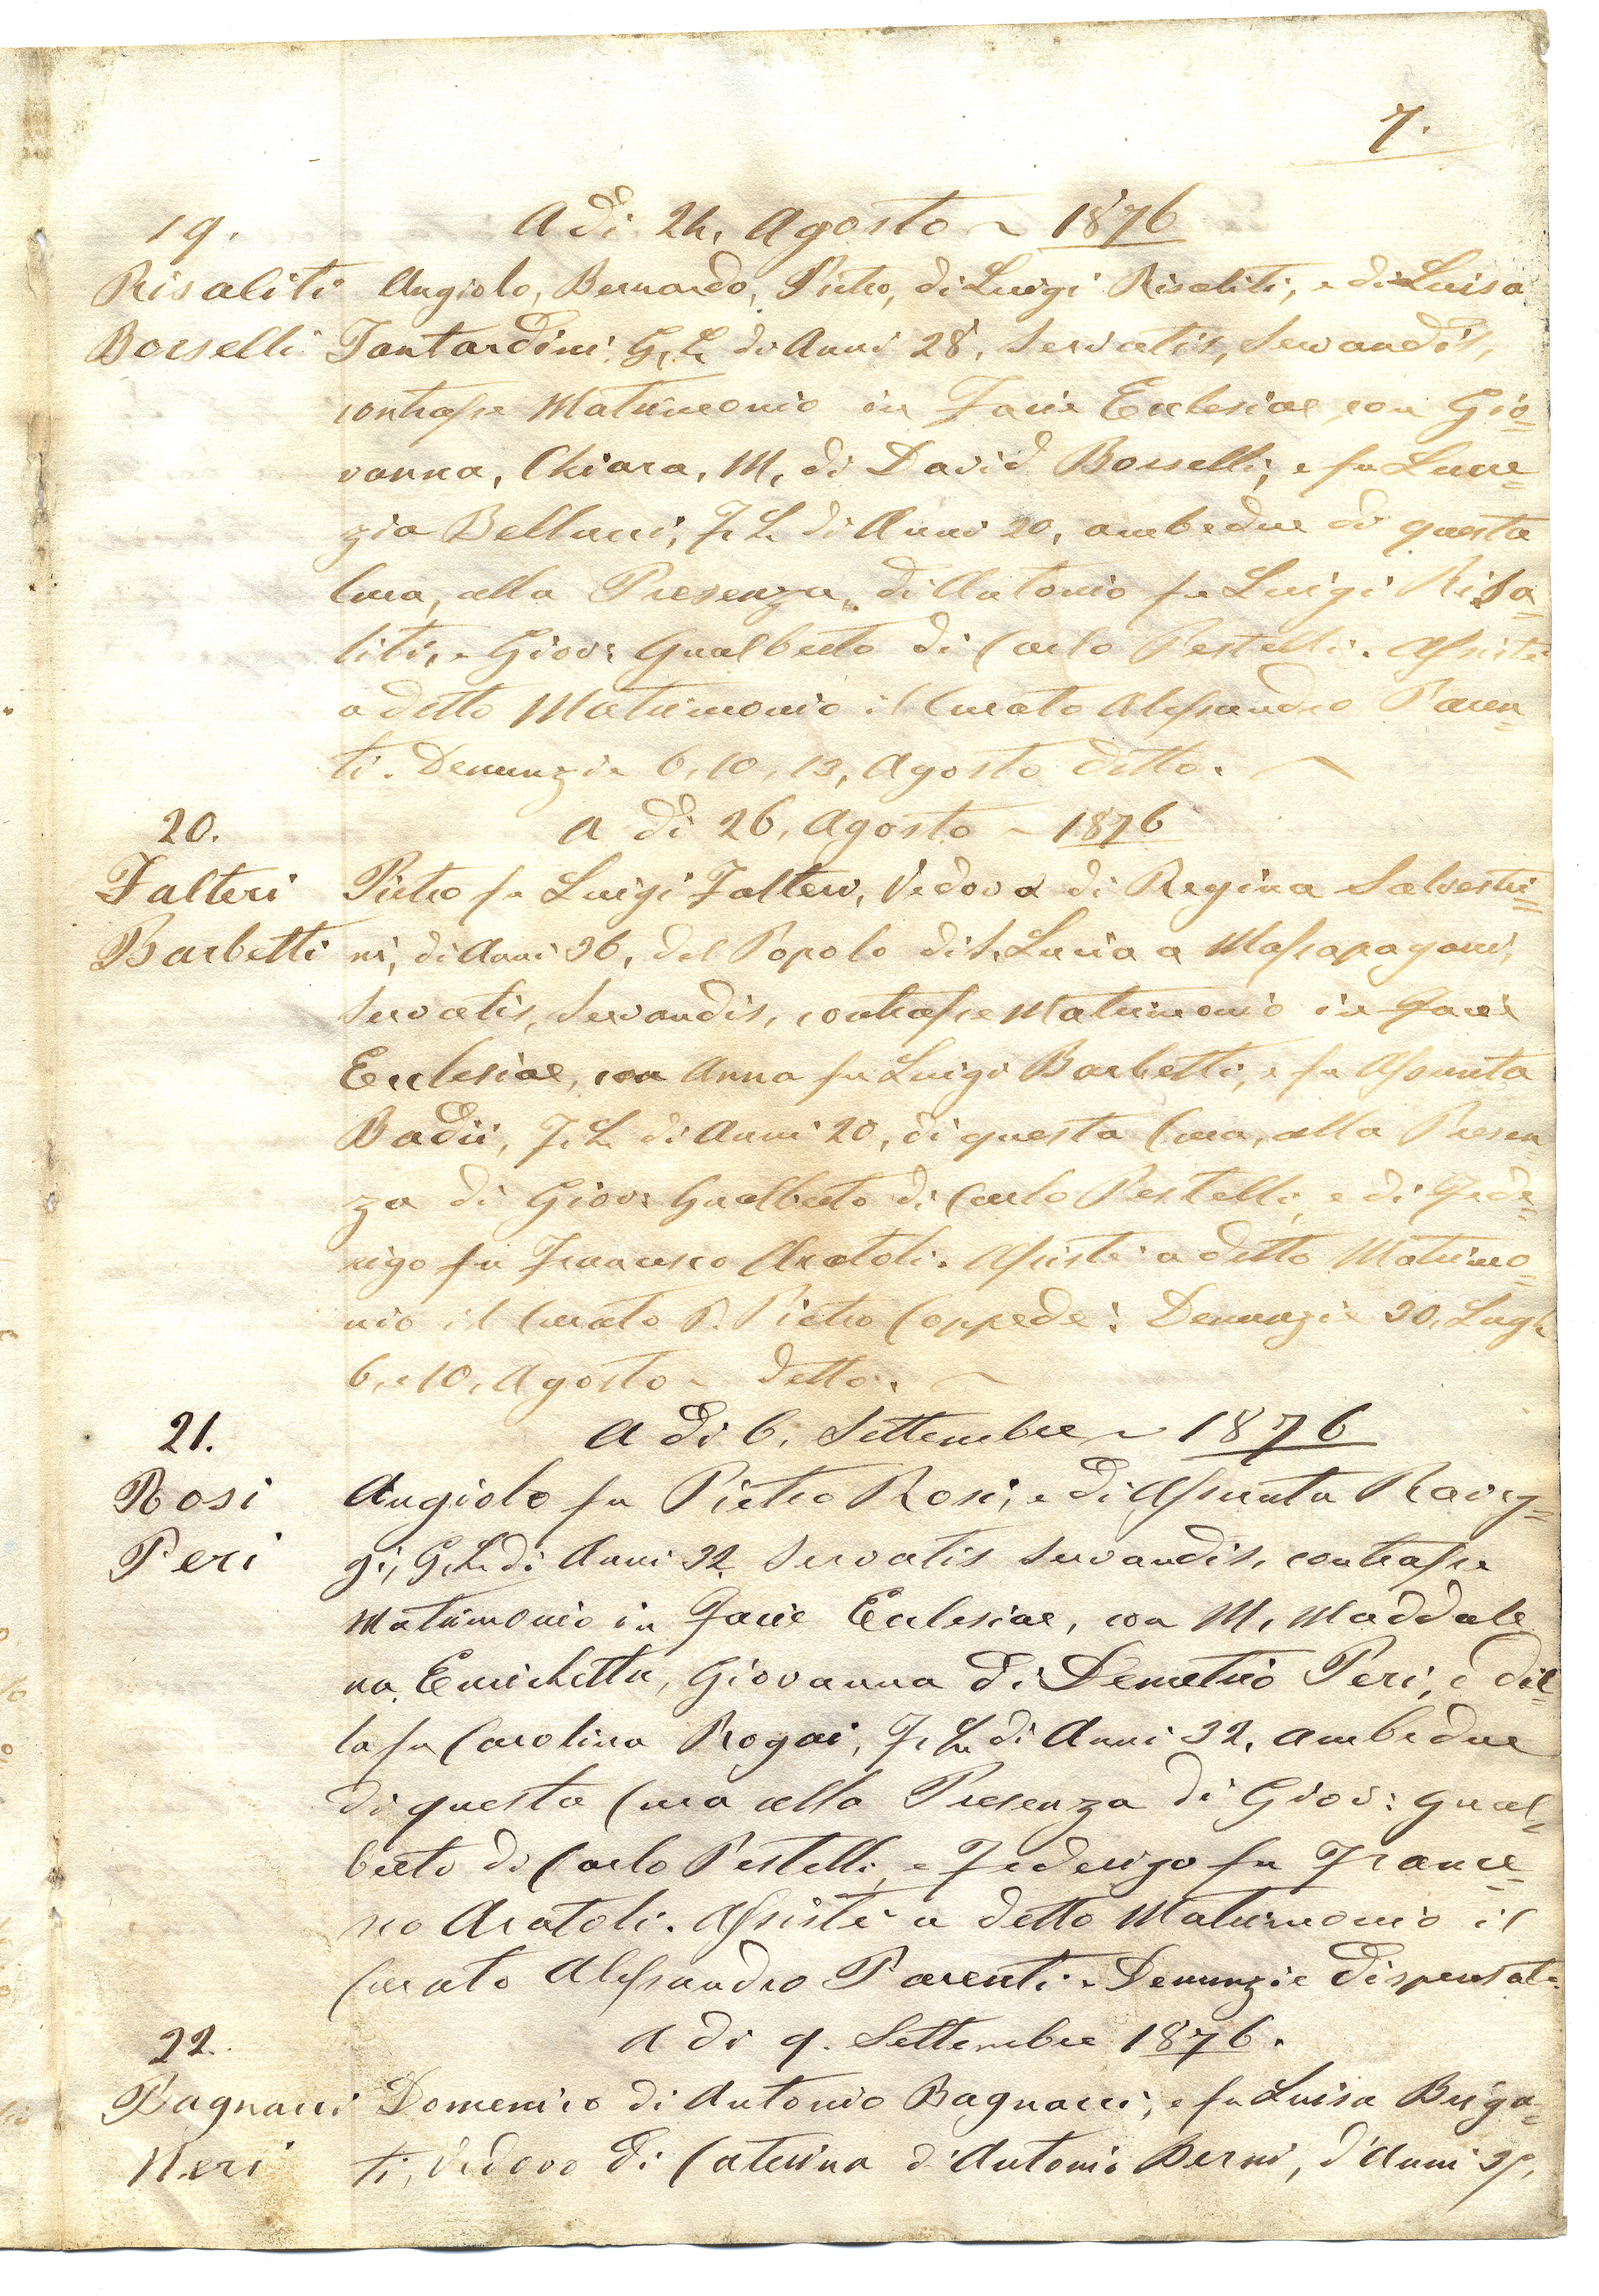 7.
19. A dì 24, Agosto ~ 1876
Risaliti Angiolo, Bernardo, Pietro, di Luigi Risaliti, e di Luisa
Borselli Fantardini, G, L, di Anni 28, Servatis, Servandis,
contrasse Matrimonio in Facie Ecclesiae, con Gio=
vanna, Chiara, M, di David Borselli, e fu Lucre=
zia Bellucci, F, L, di Anni 20, ambedue di questa
Cura, alla Presenza, di Antonio fu Luigi Risa=
liti, e Giov: Gualberto di Carlo Pestelli. Assistè
a detto Matrimonio il Curato Alessandro Paren=
ti. Denunzie 6, 10, 13, Agosto detto.
20. A dì 26, Agosto ~ 1876
Falteri Pietro fu Luigi Falteri, Vedovo di Regina Salvestri=
Barbetti ni, di Anni 36, del Popolo di S. Lucia a Massapagani,
Servatis, Servandis, contrasse Matrimonio in Facie
Ecclesiae, con Anna fu Luigi Barbetti, e fu Assunta
Badii, F, L, di Anni 20, di questa Cura, alla Presen=
za di Giov: Gualberto di Carlo Pestelli, e di Fede=
rigo fu Francesco Aratoli. Assistè a detto Matrimo=
nio il Curato P. Pietro Coppedè: Denunzie 30, Lugl.
6, e 10, Agosto ~ detto.
21. A dì 6, Settembre ~ 1876
Rosi Angiolo fu Pietro Rosi, e di Assunta Raveg=
Peri gi, G, L, di Anni 32 Servatis Servandis, contrasse
Matrimonio in Facie Ecclesiae, con M, Maddale
na, Enrichetta, Giovanna di Demetrio Peri, e del=
la fu Carolina Rogai, F, L, di Anni 32, ambedue
di questa Cura alla Presenza di Giov: Gual=
berto di Carlo Pestelli, e Federigo fu France=
sco Aratoli. Assistè a detto Matrimonio il
Curato Alessandro Parenti. Denunzie Dispensate
22. A dì 9. Settembre 1876.
Bagnacci Domenico di Antonio Bagnacci, e fu Luisa Briga=
Neri ti, Vedovo di Caterina d'Antonio Berni, d'Anni